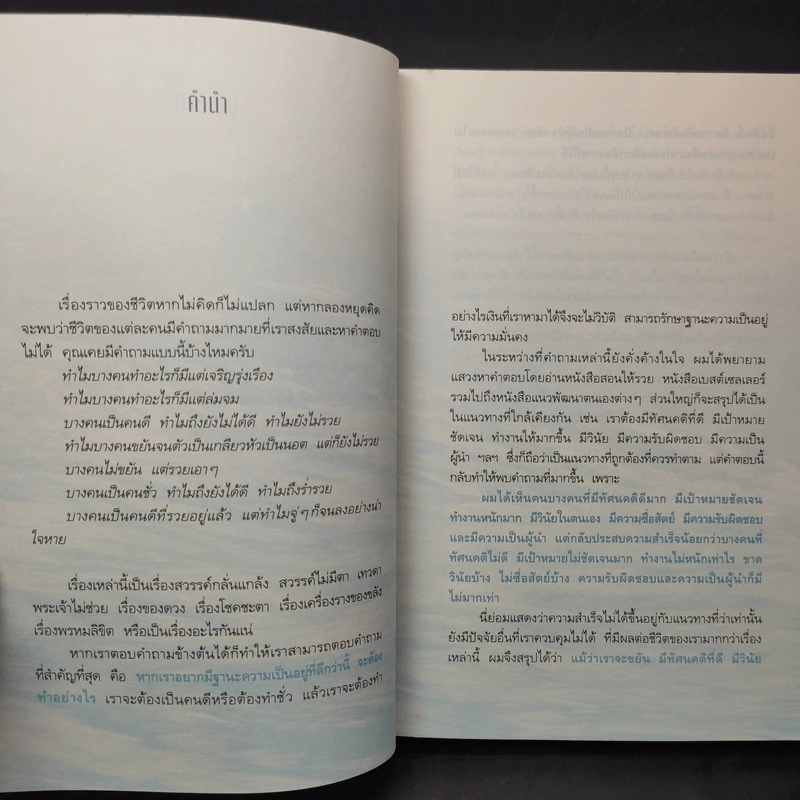 คำนำ
เรื่องราวของชีวิตหากไม่คิดก็ไม่แปลก แต่หากลองหยุดคิด
จะพบว่าชีวิตของแต่ละคนมีคำถามมากมายที่เราสงสัยและหาคำตอบ
ไม่ได้ คุณเคยมีคำถามแบบนี้บ้างไหมครับ
ทำไมบางคนทำอะไรก็มีแต่เจริญรุ่งเรือง
ทำไมบางคนทำอะไรก็มีแต่ล่มจม
บางคนเป็นคนดี ทำไมถึงยังไม่ได้ดี ทำไมยังไม่รวย
ทำไมบางคนขยันจนตัวเป็นเกลียวหัวเป็นนอต แต่ก็ยังไม่รวย
บางคนไม่ขยัน แต่รวยเอาๆ
บางคนเป็นคนชั่ว ทำไมถึงยังได้ดี ทำไมถึงร่ำรวย
บางคนเป็นคนดีที่รวยอยู่แล้ว แต่ทำไมจู่ๆ ก็จนลงอย่างน่า
ใจหาย
เรื่องเหล่านี้เป็นเรื่องสวรรค์กลั่นแกล้ง สวรรค์ไม่มีตา เทวดา
พระเจ้าไม่ช่วย เรื่องของดวง เรื่องโชคชะตา เรื่องเครื่องรางของขลัง
เรื่องพรหมลิขิต หรือเป็นเรื่องอะไรกันแน่
หากเราตอบคำถามข้างต้นได้ก็ทำให้เราสามารถตอบคำถาม
ที่สำคัญที่สุด คือ หากเราอยากมีฐานะความเป็นอยู่ที่ดีกว่านี้ จะต้อง
ทำอย่างไร เราจะต้องเป็นคนดีหรือต้องทำชั่ว แล้วเราจะต้องทำ
อย่างไรเงินที่เราหามาได้จึงจะไม่วิบัติ สามารถรักษาฐานะความเป็นอยู่
ให้มีความมั่นคง
ในระหว่างที่คำถามเหล่านี้ยังคั่งค้างในใจ ผมได้พยายาม
แสวงหาคำตอบโดยอ่านหนังสือสอนให้รวย หนังสือเบสต์เซลเลอร์
รวมไปถึงหนังสือแนวพัฒนาตนเองต่างๆ ส่วนใหญ่ก็จะสรุปได้เป็น
ในแนวทางที่ใกล้เคียงกัน เช่น เราต้องมีทัศนคติที่ดี มีเป้าหมาย
ชัดเจน ทำงานให้มากขึ้น มีวินัย มีความรับผิดชอบ มีความเป็น
ผู้นำ ฯลฯ ซึ่งก็ถือว่าเป็นแนวทางที่ถูกต้องที่ควรทำตาม แต่คำตอบนี้
กลับทำให้พบคำถามที่มากขึ้น เพราะ
ผมได้เห็นคนบางคนที่มีทัศนคติดีมาก มีเป้าหมายชัดเจน
ทำงานหนักมาก มีวินัยในตนเอง มีความซื่อสัตย์ มีความรับผิดชอบ
และมีความเป็นผู้นำ แต่กลับประสบความสำเร็จน้อยกว่าบางคนที่
ทัศนคติไม่ดี มีเป้าหมายไม่ชัดเจนมาก ทำงานไม่หนักเท่าไร ขาด
วินัยบ้าง ไม่ซื่อสัตย์บ้าง ความรับผิดชอบและความเป็นผู้นำก็มี
ไม่มากเท่า
นี่ย่อมแสดงว่าความสำเร็จไม่ได้ขึ้นอยู่กับแนวทางที่ว่าเท่านั้น
ยังมีปัจจัยอื่นที่เราควบคุมไม่ได้ ที่มีผลต่อชีวิตของเรามากกว่าเรื่อง
เหล่านี้ ผมจึงสรุปได้ว่า แม้ว่าเราจะขยัน มีทัศนคติที่ดี มีวินัย